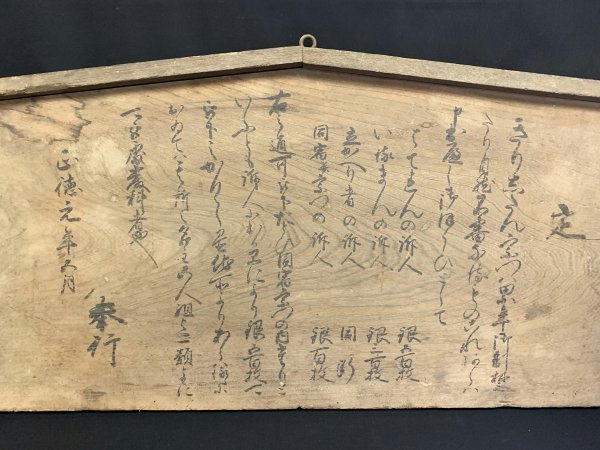 定
きりしたん宗門ハ累年御制禁
たり自然不審なるものこれあらハ
申出へし御ほうひとして
はてれんの訴人 銀五百枚
いるまんの訴人 銀三百枚
立かへり者の訴人 同断
同宿并宗門の訴人 銀百枚
右之通可被下たとひ同宿宗門の内たりと
いふとも訴人に出る品により銀五百枚可
被下之かくし置他所よりあらはるゝに
おゐてハ其所之名主并五人組迄一類ともに
可被處嚴科者也
正徳元年五月
奉行